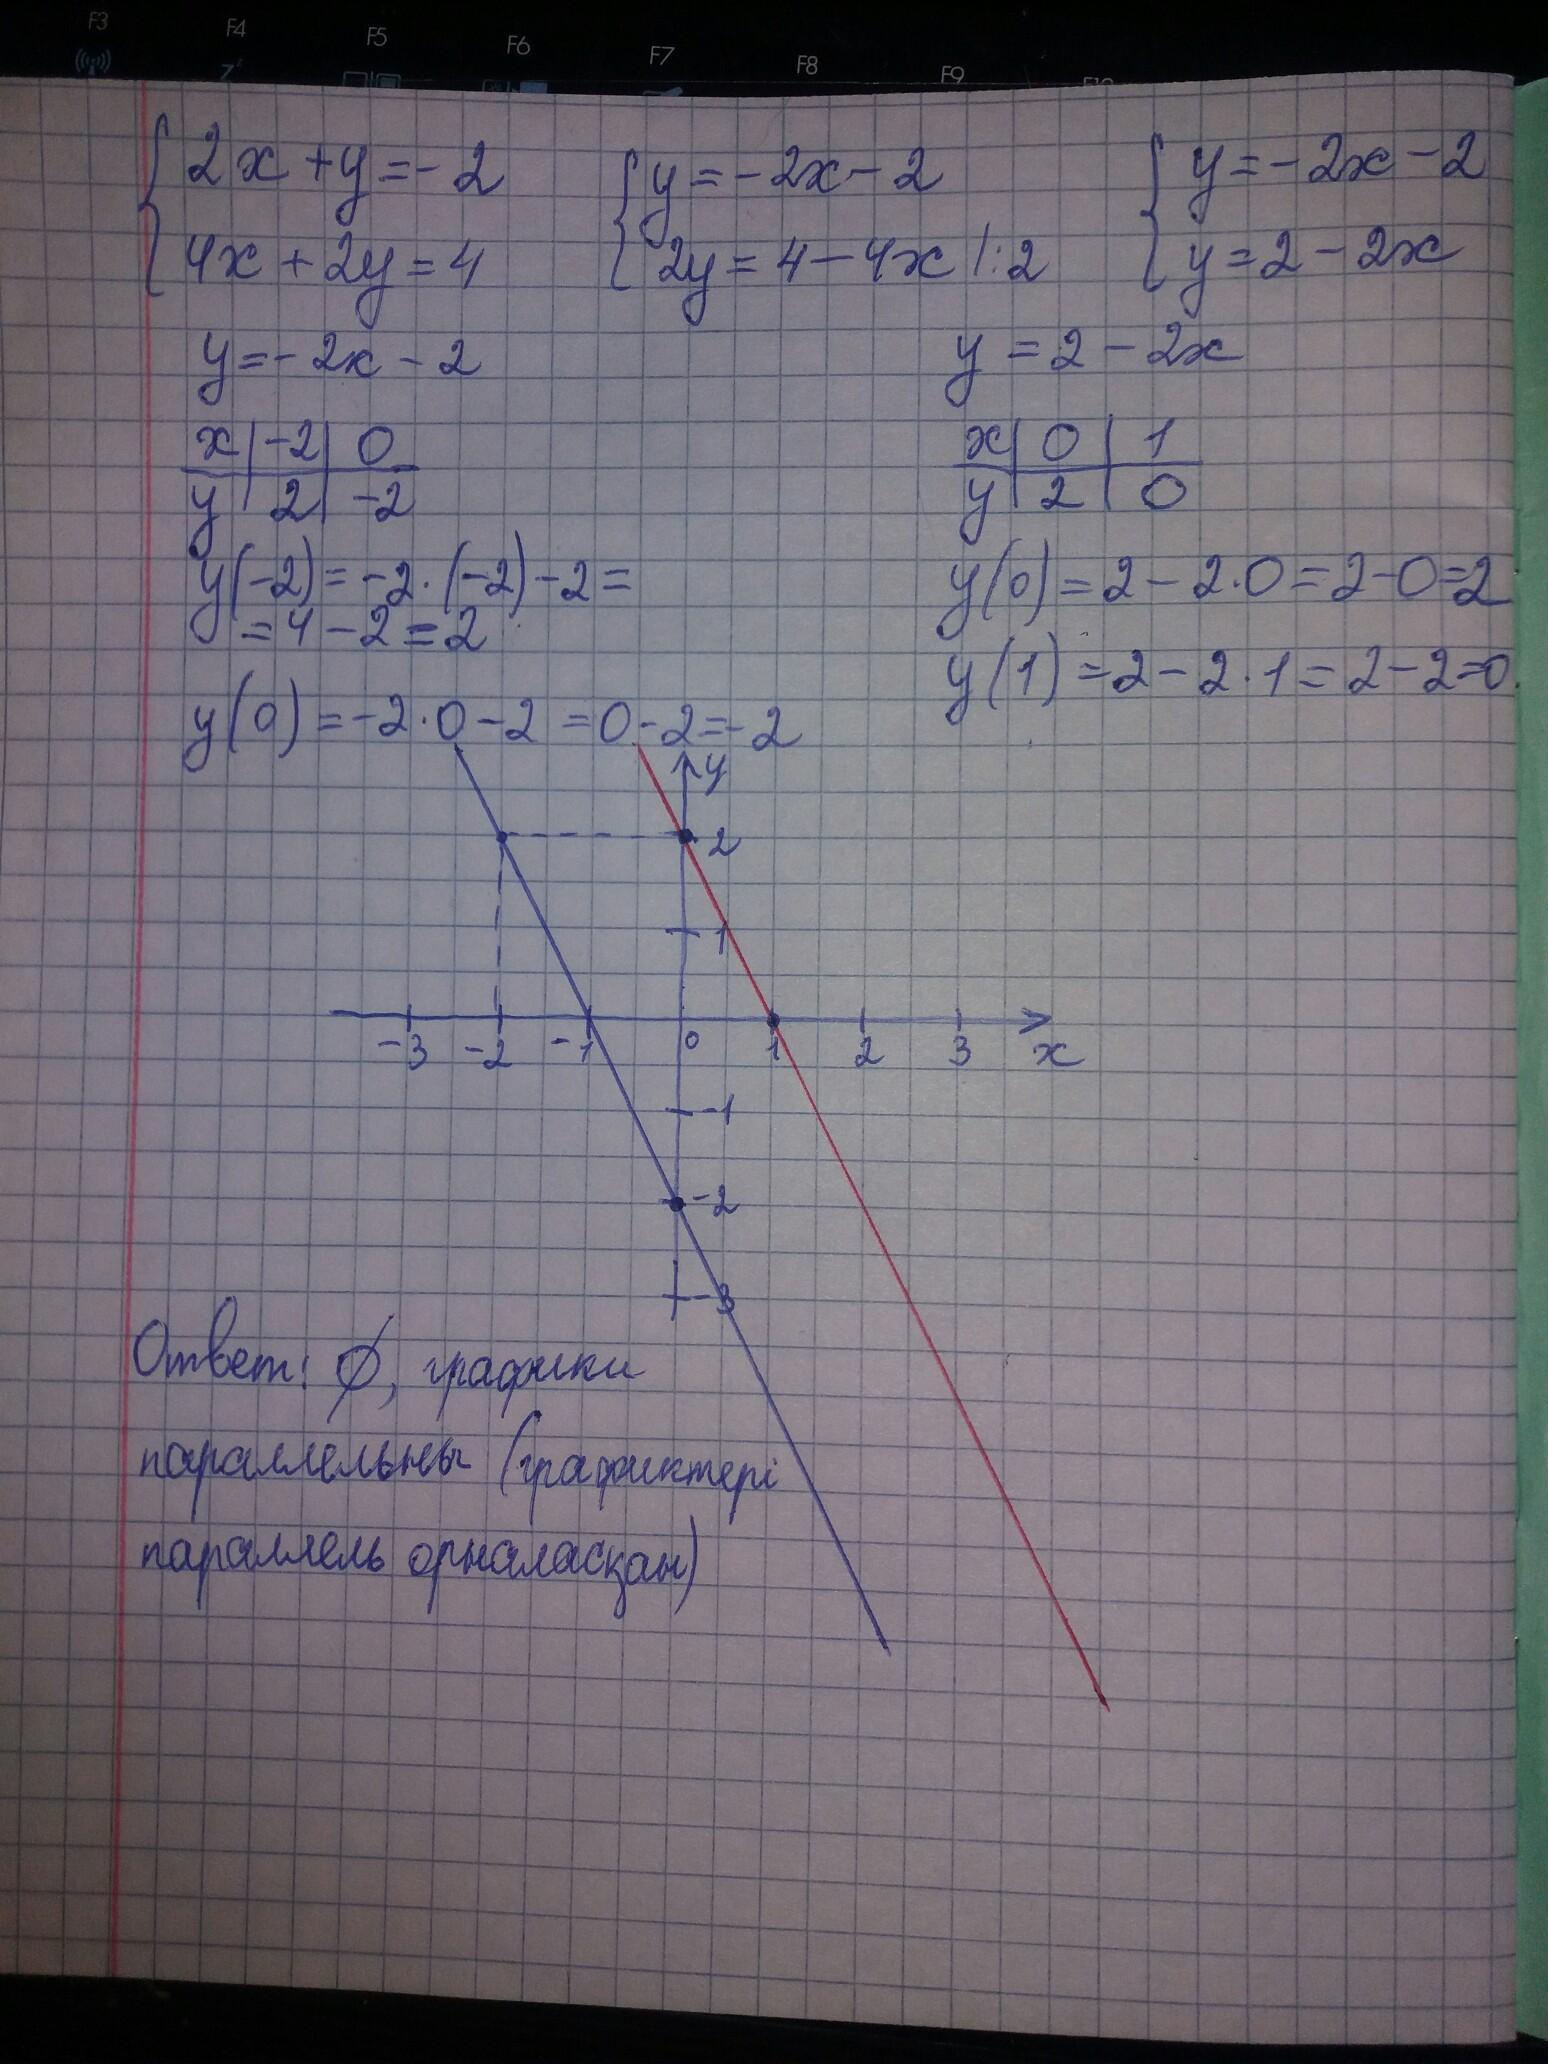 F3 F4 F5 F6 F7 F8 F9
{ 2x + y = -2 { y = -2x - 2 { y = -2x - 2
{ 4x + 2y = 4 { 2y = 4 - 4x |:2 { y = 2 - 2x
y = -2x - 2 y = 2 - 2x
x | -2 | 0 x | 0 | 1
y | 2 | -2 y | 2 | 0
y(-2) = -2·(-2) - 2 = y(0) = 2 - 2·0 = 2 - 0 = 2
= 4 - 2 = 2
y(1) = 2 - 2·1 = 2 - 2 = 0
y(0) = -2·0 - 2 = 0 - 2 = -2
y
2
1
-3 -2 -1 0 1 2 3 x
-1
-2
-3
Ответ: ∅, графики
параллельны (графиктері
параллель орналасқан)